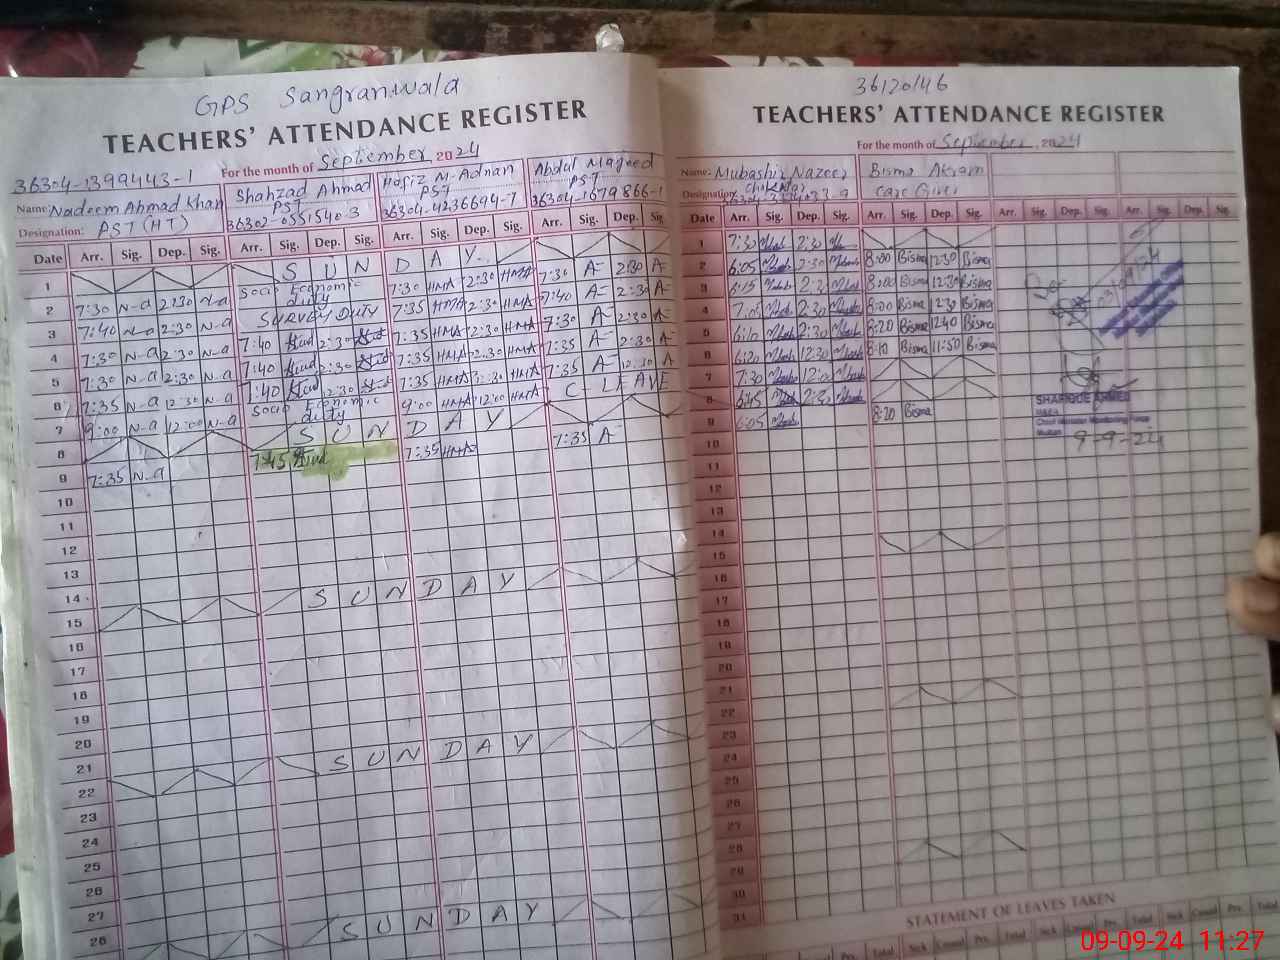 GPS Sangranwala
TEACHERS' ATTENDANCE REGISTER
For the month of September 2024
36304-1399443-1
Name: Nadeem Ahmad Khan
Designation: PST (HT)
Shahzad Ahmad
PST
36302-0551540-3
Hafiz M. Adnan
PST
36304-4236694-7
Abdul Majeed
PST
36304-1679866-1
Date Arr. Sig. Dep. Sig. Arr. Sig. Dep. Sig. Arr. Sig. Dep. Sig. Arr. Sig. Dep. Sig.
1 S U N D A Y
2 7:30 N-a 2:30 N-a Socio Economic duty 7:30 HMA 2:30 HMA 7:30 A 2:30 A
3 7:40 N-a 2:30 N-a SURVEY DUTY 7:35 HMA 2:30 HMA 7:40 A 2:30 A
4 7:30 N-a 2:30 N-a 7:40 2:30 7:35 HMA 2:30 HMA 7:30 A 2:30 A
5 7:30 N-a 2:30 N-a 7:40 2:30 7:35 HMA 2:30 HMA 7:35 A 2:30 A
6 7:35 N-a 12:30 N-a 7:40 12:30 7:35 HMA 12:30 HMA 7:35 A 12:30 A
7 9:00 N-a 12:00 N-a Socio Economic duty 9:00 HMA 12:00 HMA C-LEAVE
8 S U N D A Y
9 7:35 N-a 7:45 7:35 HMA 7:35 A
10
11
12
13
14
15 S U N D A Y
16
17
18
19
20
21
22 S U N D A Y
23
24
25
26
27
28
S U N D A Y
36120146
TEACHERS' ATTENDANCE REGISTER
For the month of September, 2024
Name: Mubashir Nazeer
Designation:
Bisma Akram
Care Giver
Date Arr. Sig. Dep. Sig. Arr. Sig. Dep. Sig. Arr. Sig. Dep. Sig. Arr. Sig. Dep. Sig.
1 7:30 2:30
2 6:05 2:30 8:00 Bisma 12:30 Bisma
3 6:15 8:00 Bisma 12:30 Bisma
4 7:05 2:30 8:00 Bisma 12:30 Bisma
5 6:10 2:30 8:20 Bisma 12:40 Bisma
6 6:20 12:30 8:10 Bisma 11:50 Bisma
7 7:30 12:00
8 6:45 2:30
9 6:05 8:20 Bisma
10
11
12
13
14
15
16
17
18
19
20
21
22
23
24
25
26
27
28
29
30
31
SHAFIQUE AHMED
Chief Minister Monitoring Force
Multan
9-9-24
STATEMENT OF LEAVES TAKEN
09-09-24 11:27